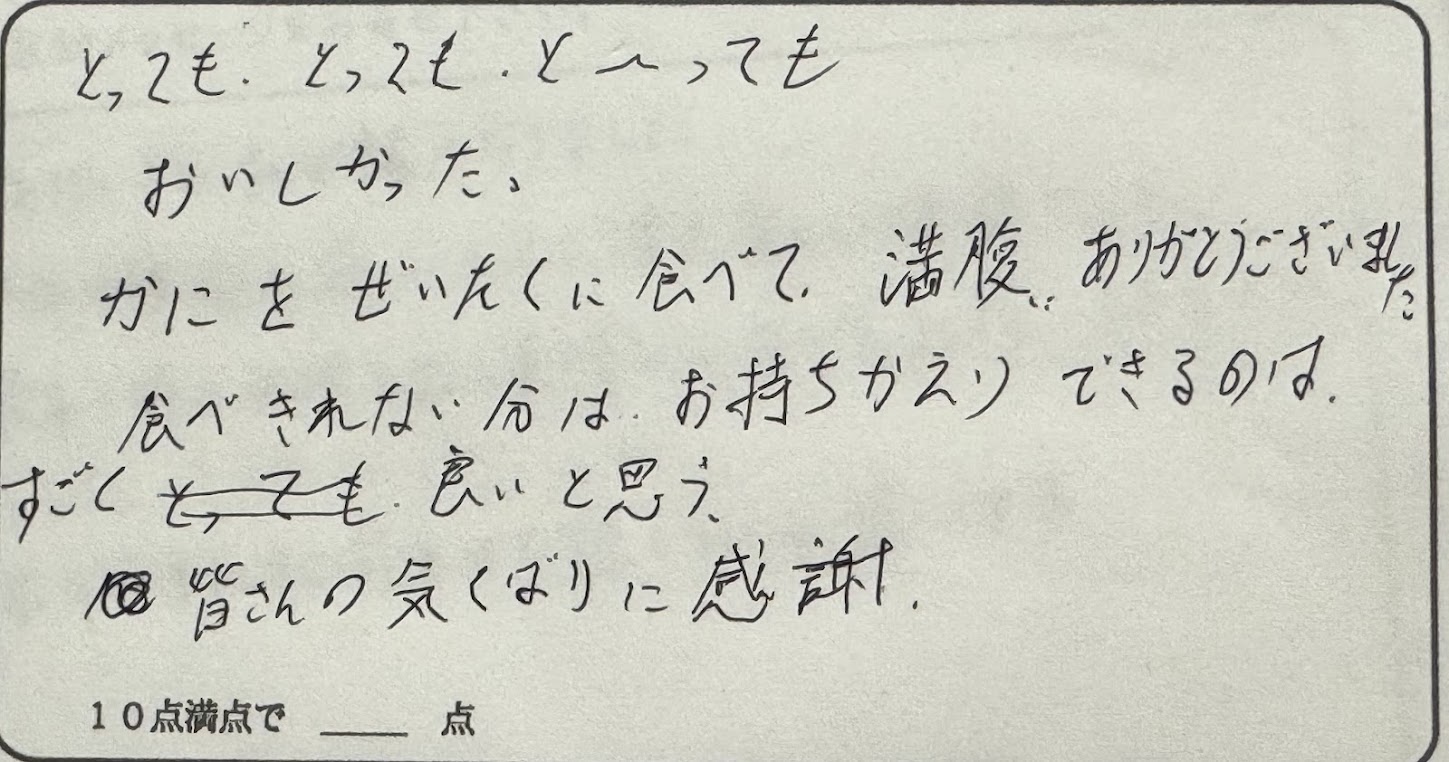 とっても．とっても．と〜っても
おいしかった。
かにを ぜいたくに食べて、満腹… ありがとうございました
食べきれない分は．お持ちかえりできるのは．
すごく とっても．良いと思う。
皆さんの気くばりに感謝．
10点満点で ____ 点